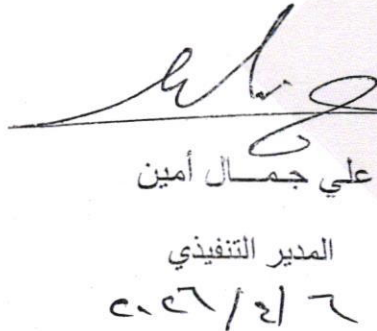 علي جمال أمين
المدير التنفيذي
٢٠٢٦/٤/٦